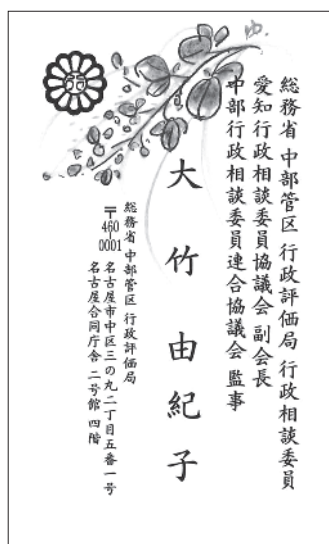 ゆ.
総務省 中部管区 行政評価局 行政相談委員
愛知行政相談委員協議会 副会長
中部行政相談委員連合協議会 監事
大竹 由紀子
総務省 中部管区 行政評価局
〒460-0001 名古屋市中区三の丸二丁目五番一号
名古屋合同庁舎 二号館 四階